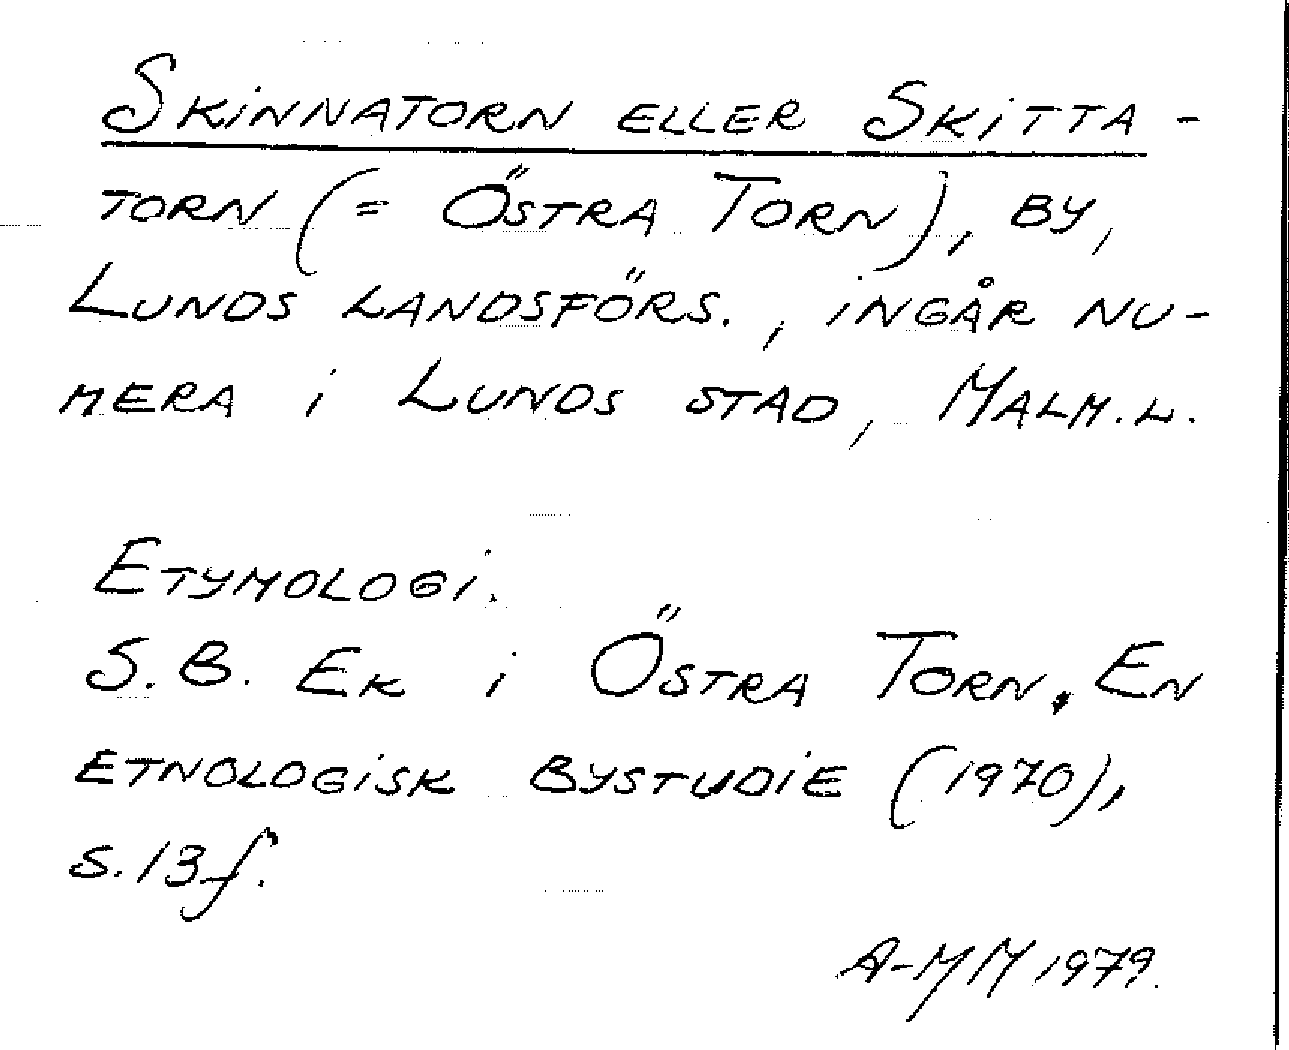 Skinnatorn eller Skitta-
torn (= Östra Torn), by,
Lunds landsförs., ingår nu-
mera i Lunds stad, Malm. l.
Etymologi.
S. B. Ek i Östra Torn. En
etnologisk bystudie (1970),
s. 13 f.
A-MM 1979.